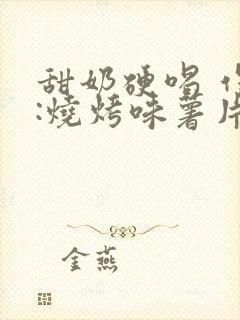 甜奶硬唱
:燒烤味薯片
金燕